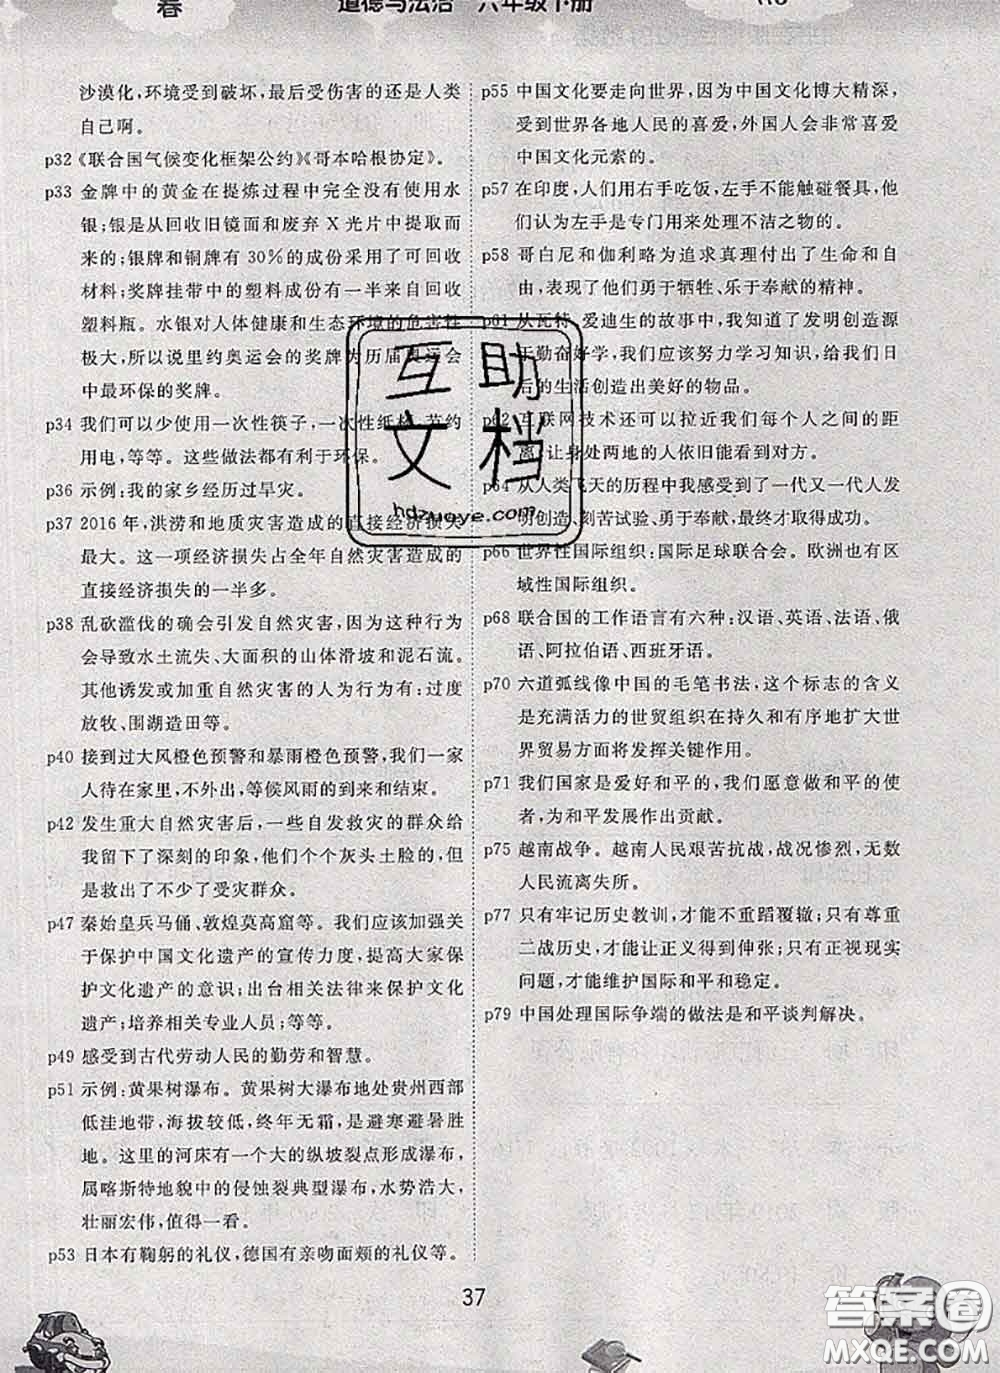 道德与法治 六年级下册
沙漠化,环境受到破坏,最后受伤害的还是人类
自己啊。
p32《联合国气候变化框架公约》《哥本哈根协定》。
p33 金牌中的黄金在提炼过程中完全没有使用水
银;银是从回收旧镜面和废弃 X 光片中提取而
来的;银牌和铜牌有 30%的成份采用了可回收
材料;奖牌挂带中的塑料成份有一半来自回收
塑料瓶。水银对人体健康和生态环境的危害性
极大,所以说里约奥运会的奖牌为历届奥运会
中最环保的奖牌。
p34 我们可以少使用一次性筷子,一次性纸杯,节约
用电,等等。这些做法都有利于环保。
p36 示例:我的家乡经历过旱灾。
p37 2016 年,洪涝和地质灾害造成的直接经济损失
最大。这一项经济损失占全年自然灾害造成的
直接经济损失的一半多。
p38 乱砍滥伐的确会引发自然灾害,因为这种行为
会导致水土流失、大面积的山体滑坡和泥石流。
其他诱发或加重自然灾害的人为行为有:过度
放牧、围湖造田等。
p40 接到过大风橙色预警和暴雨橙色预警,我们一家
人待在家里,不外出,等候风雨的到来或结束。
p42 发生重大自然灾害后,一些自发救灾的群众给
我留下了深刻的印象,他们个个灰头土脸的,但
是救出了不少了受灾群众。
p47 秦始皇兵马俑、敦煌莫高窟等。我们应该加强关
于保护中国文化遗产的宣传力度,提高大家保
护文化遗产的意识;出台相关法律来保护文化
遗产;培养相关专业人员;等等。
p49 感受到古代劳动人民的勤劳和智慧。
p51 示例:黄果树瀑布。黄果树大瀑布地处贵州西部
低洼地带,海拔较低,终年无霜,是避寒避暑胜
地。这里的河床有一个大的纵坡裂点形成瀑布,
属喀斯特地貌中的侵蚀裂典型瀑布,水势浩大,
壮丽宏伟,值得一看。
p53 日本有鞠躬的礼仪,德国有亲吻面颊的礼仪等。
p55 中国文化要走向世界,因为中国文化博大精深,
受到世界各地人民的喜爱,外国人会非常喜爱
中国文化元素的。
p57 在印度,人们用右手吃饭,左手不能触碰餐具,他
们认为左手是专门用来处理不洁之物的。
p58 哥白尼和伽利略为追求真理付出了生命和自
由,表现了他们勇于牺牲、乐于奉献的精神。
p61 从瓦特、爱迪生的故事中,我知道了发明创造源
于勤奋好学,我们应该努力学习知识,给我们日
后的生活创造出美好的物品。
p62 互联网技术还可以拉近我们每个人之间的距
离,让身处两地的人依旧能看到对方。
p64 从人类飞天的历程中我感受到了一代又一代人发
明创造、刻苦试验、勇于奉献,最终才取得成功。
p66 世界性国际组织:国际足球联合会。欧洲也有区
域性国际组织。
p68 联合国的工作语言有六种:汉语、英语、法语、俄
语、阿拉伯语、西班牙语。
p70 六道弧线像中国的毛笔书法,这个标志的含义
是充满活力的世贸组织在持久和有序地扩大世
界贸易方面将发挥关键作用。
p71 我们国家是爱好和平的,我们愿意做和平的使
者,为和平发展作出贡献。
p75 越南战争。越南人民艰苦抗战,战况惨烈,无数
人民流离失所。
p77 只有牢记历史教训,才能不重蹈覆辙;只有尊重
二战历史,才能让正义得到伸张;只有正视现实
问题,才能维护国际和平和稳定。
p79 中国处理国际争端的做法是和平谈判解决。
互助
文档
hdzuoye.com
37
答案圈
MXQE.COM